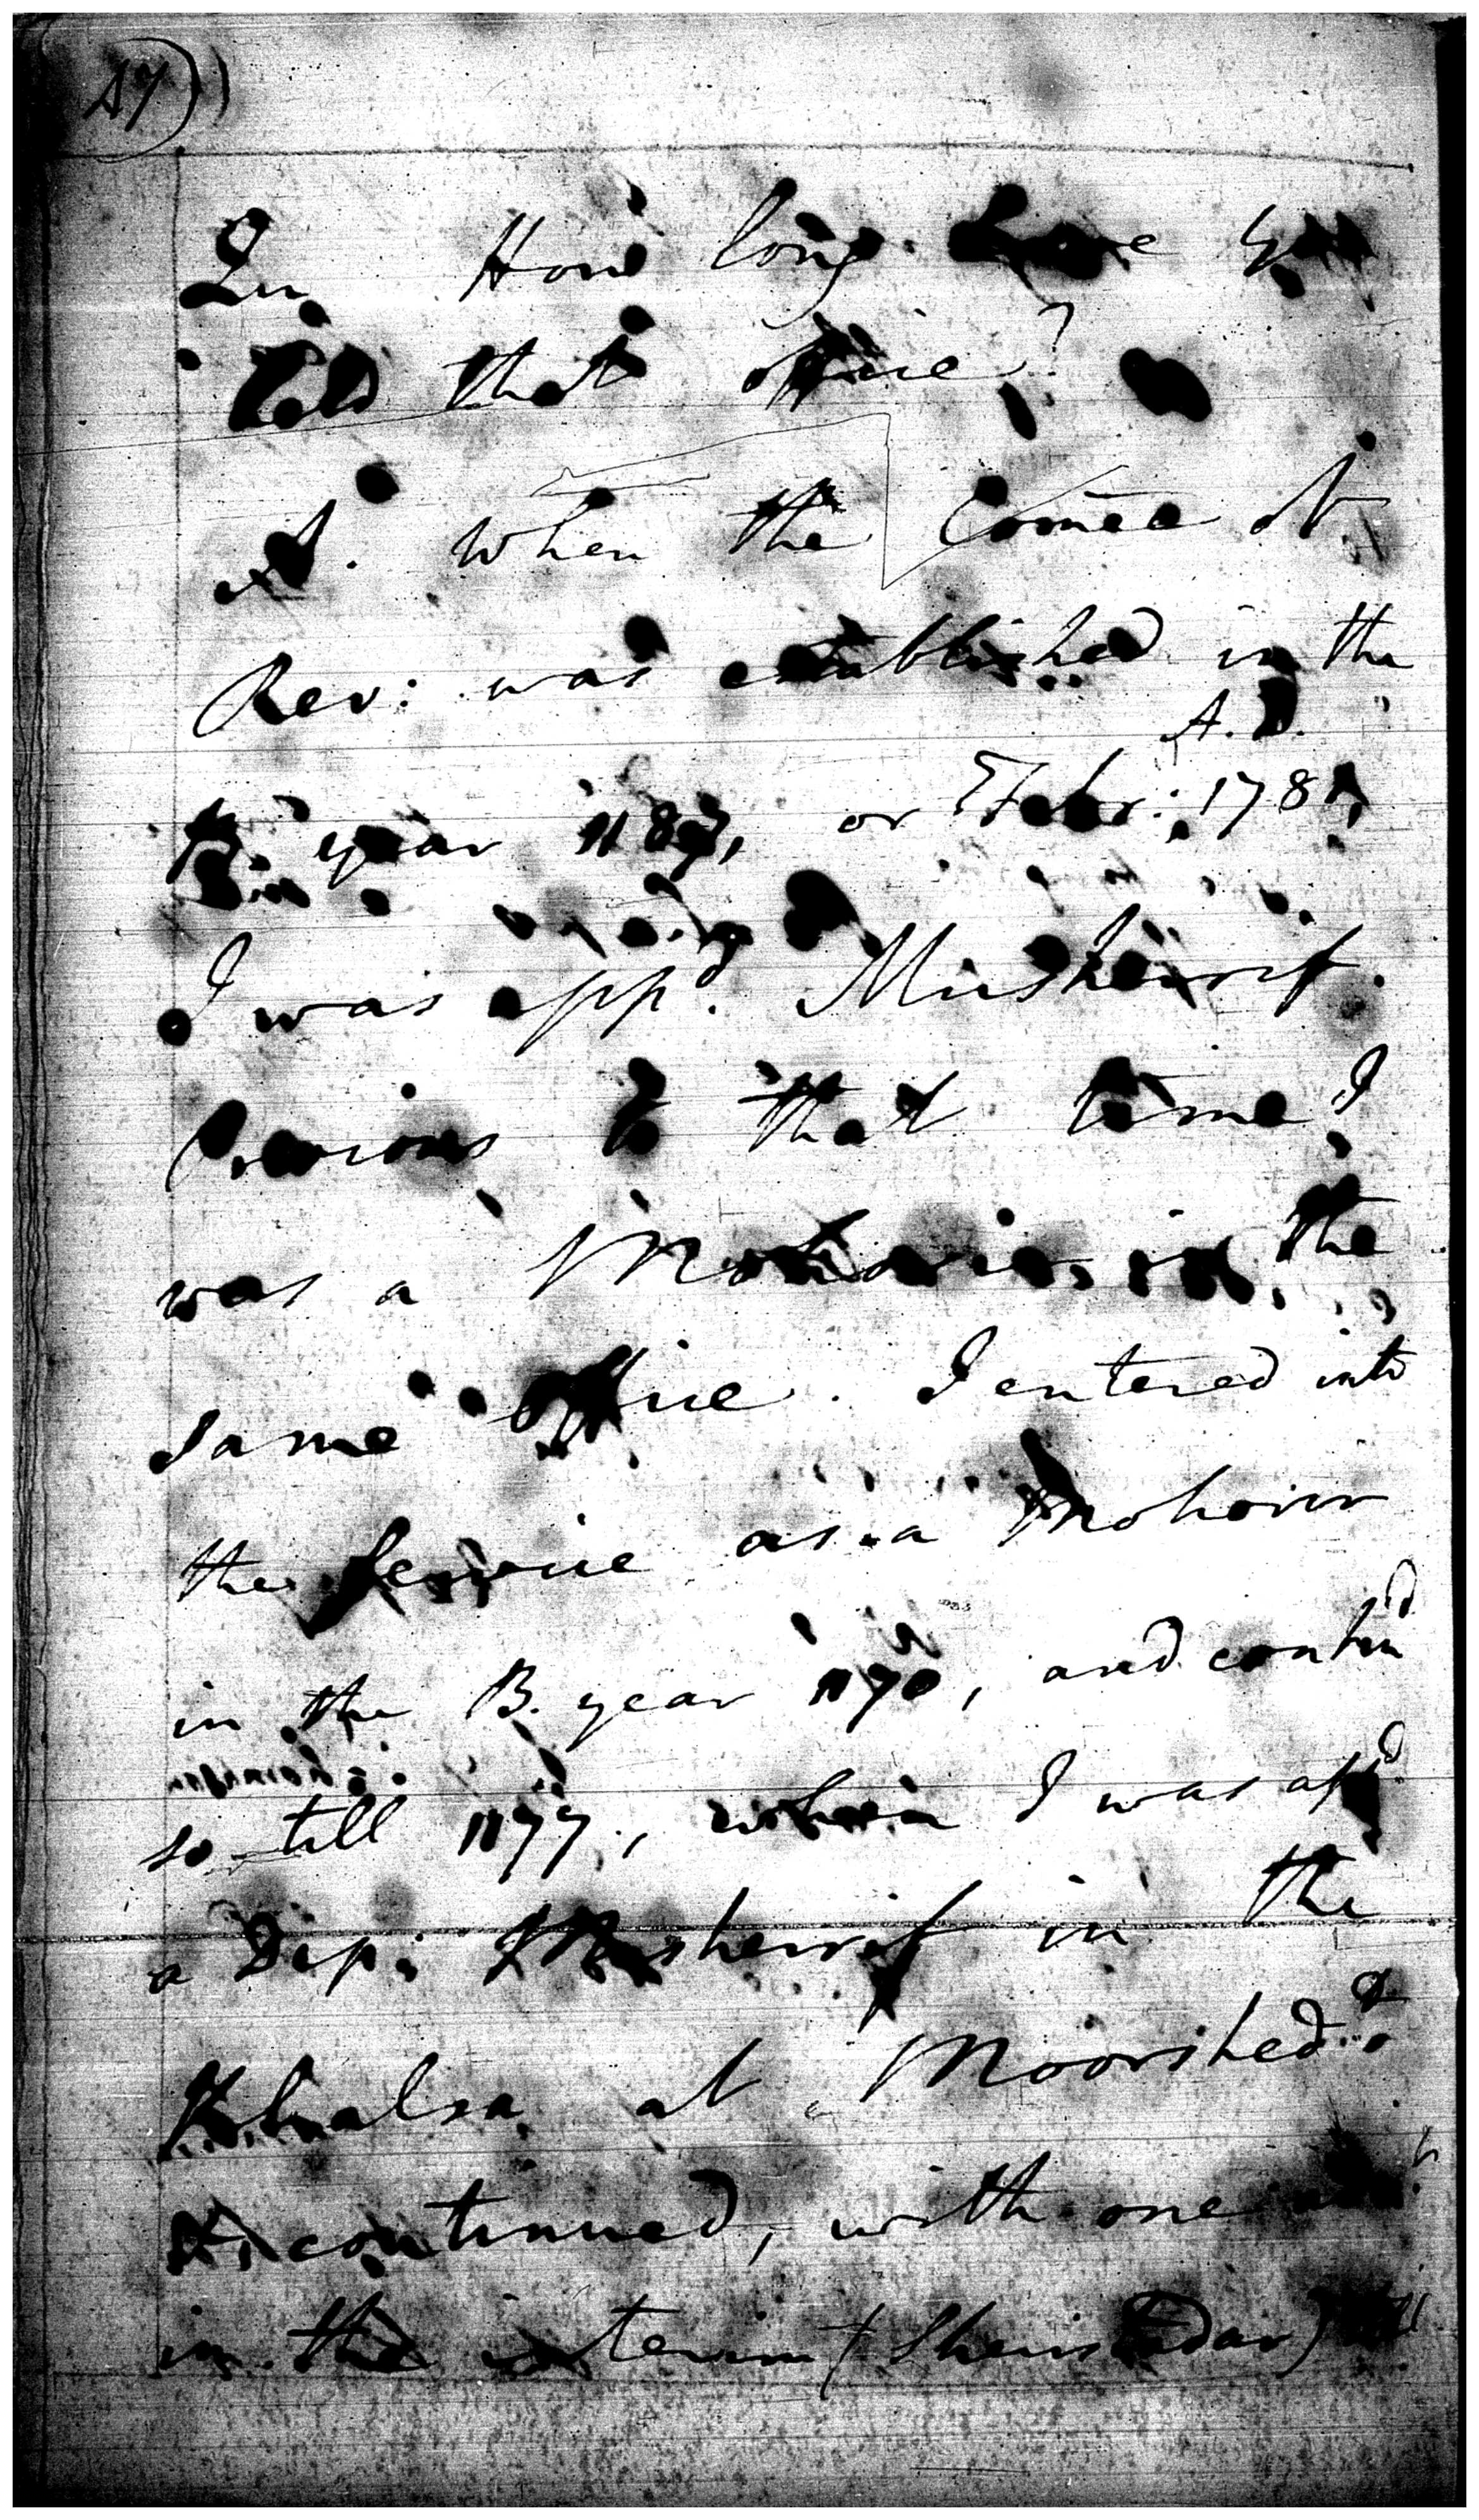 Qu How long have you
held that office?
A. When the Comee of
Rev: was established in the
A. D.
B. year 1187, or Febr: 1781,
I was app^d. Musherrif.
Previous to that time I
was a Mohorir in the
same office. I entered into
the service as a Mohorir
in the B. year 1170, and contin^d
so till 1177, when I was app^d.
a Dep: Musherrif in the
Khalsa at Moorshed^d
& continued, with one
in the interim (Sheristadar)